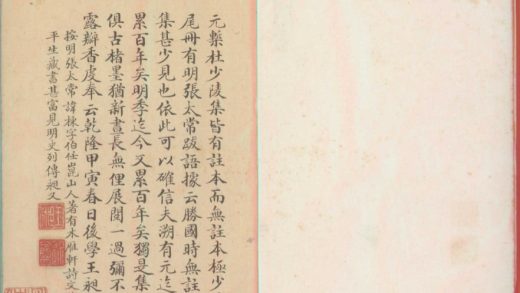 元槧杜少陵集皆有註本而無註本極少
尾冊有明張太常跋語據云勝國時無註
集甚少見也依此可以確信夫溯有元迄
累百年矣明季迄今又累百年矣獨是集
俱古楮墨猶新晝長無俚展閱一過彌不
露瓣香皮奉云乾隆甲寅春日後學王昶
按明張太常諱棟字伯任崑山人著有木雁軒詩文
平生藏書甚富見明史列傳昶又